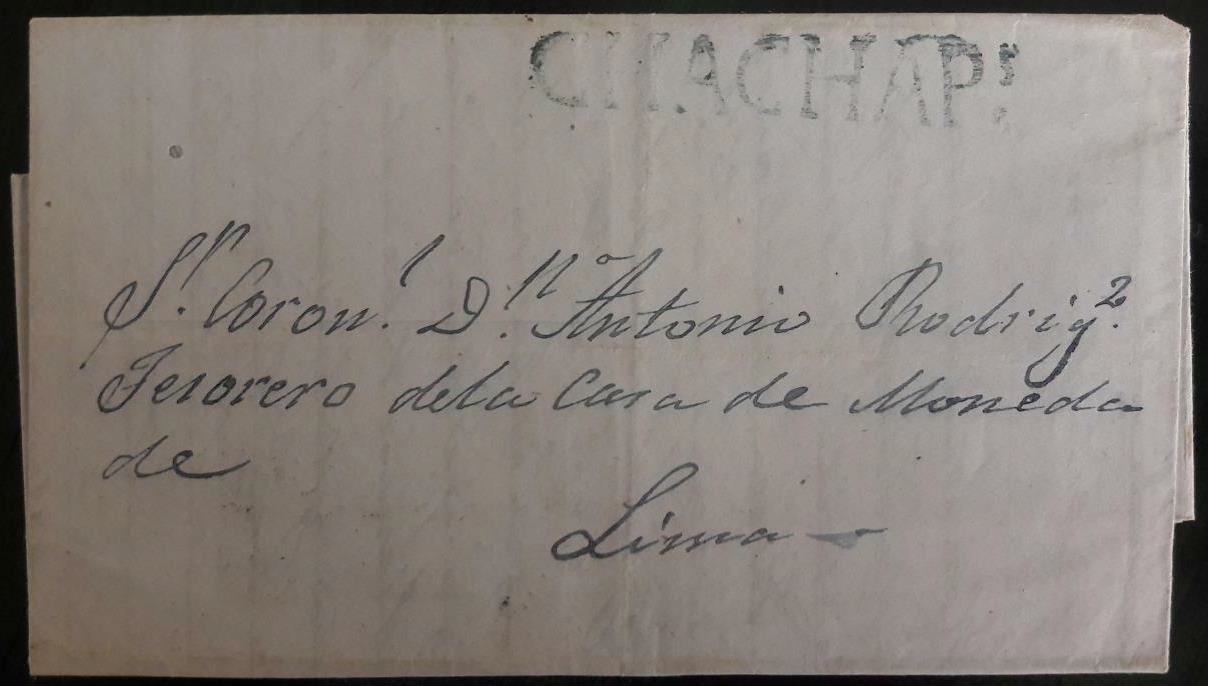 CHACHAP:
S.r Coron.l D.n Antonio Rodrig.z
Tesorero dela Casa de Moneda
de
Lima